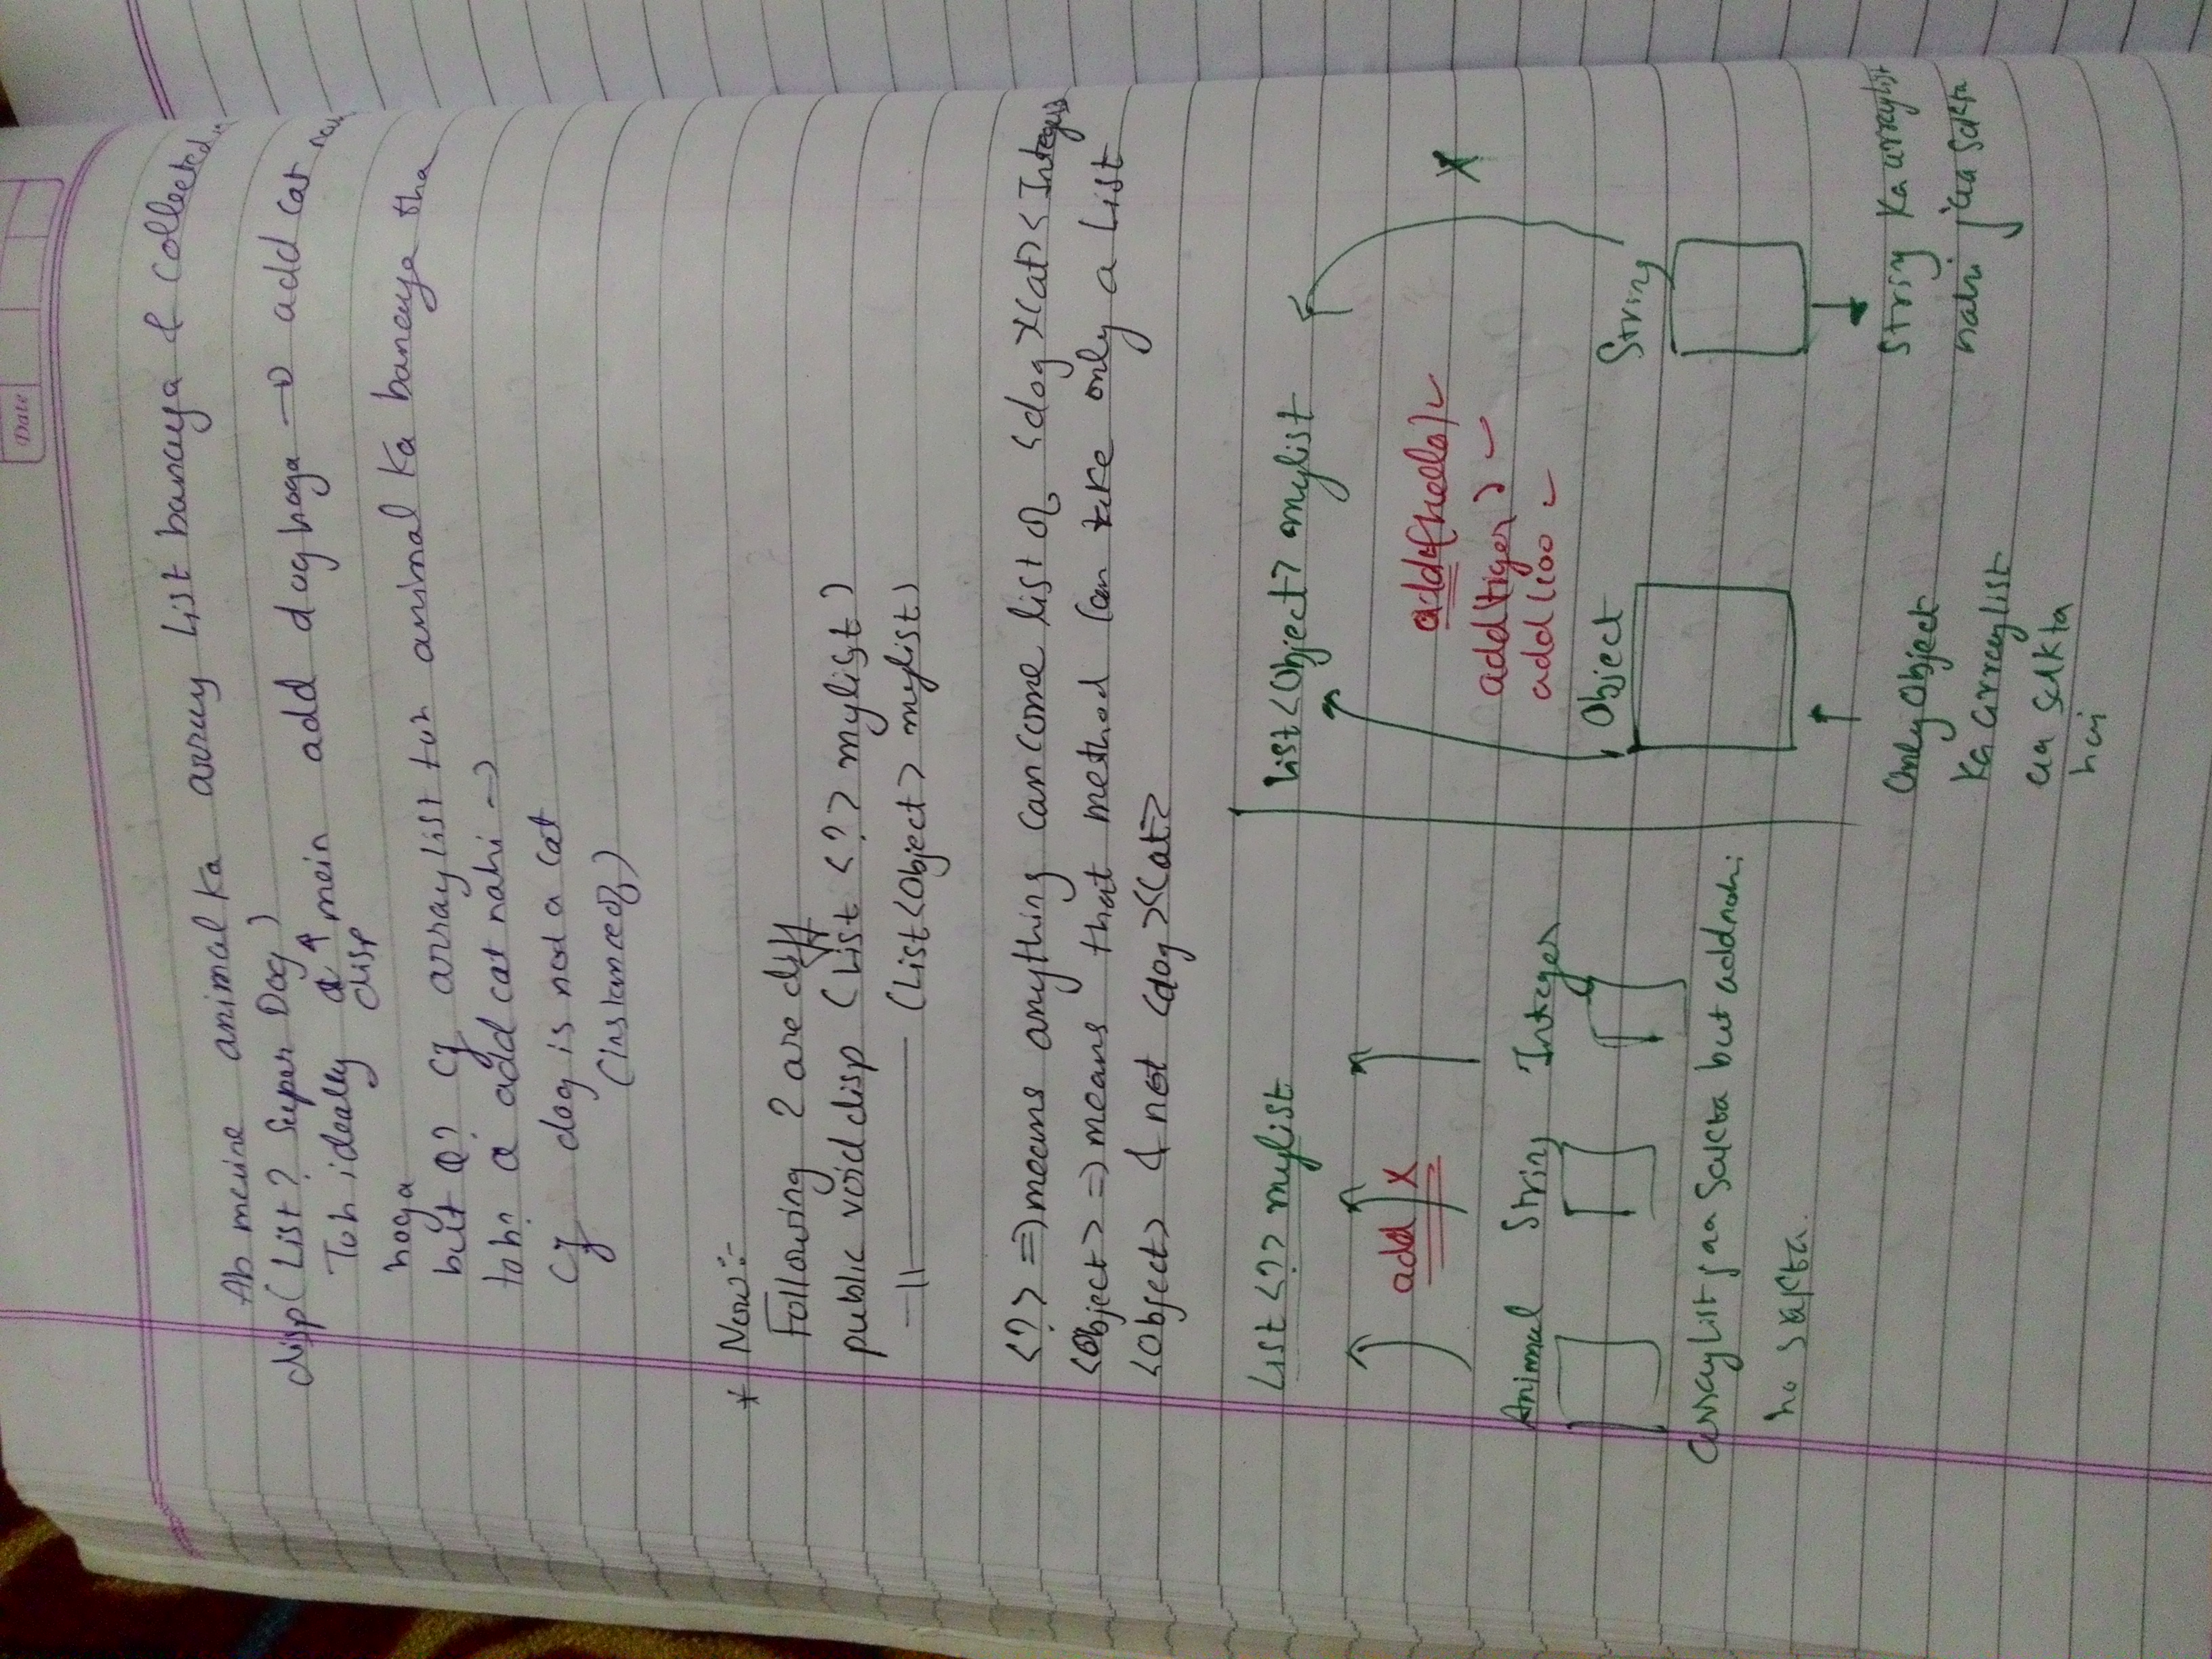 Date
Ab meine animal ka array list banaya & collected
disp( List ? Super Dog )
Toh ideally ↑ mein add dog hoga → add cat
disp
hoga
but Q? Cz arraylist toh animal ka banaya tha
toh? add cat nahi →
Cz dog is not a cat
(instanceof)
* Now:-
Following 2 are diff
public void disp (List <?> mylist)
—||— (List<Object> mylist)
<?> => means anything can come list of <dog><Cat><Integer>
<Object> => means that method can take only a List
<Object> & not <dog><Cat>
List <?> mylist
add X
Animal String Integer
arraylist jaa sakta but add nahi
ho sakta.
List<Object> mylist
add(hello) ✓
add(tiger) ✓
add(100 ✓
X
Object
String
Only Object
Ka arraylist
aa sakta
hai
String Ka arraylist
nahi jaa sakta